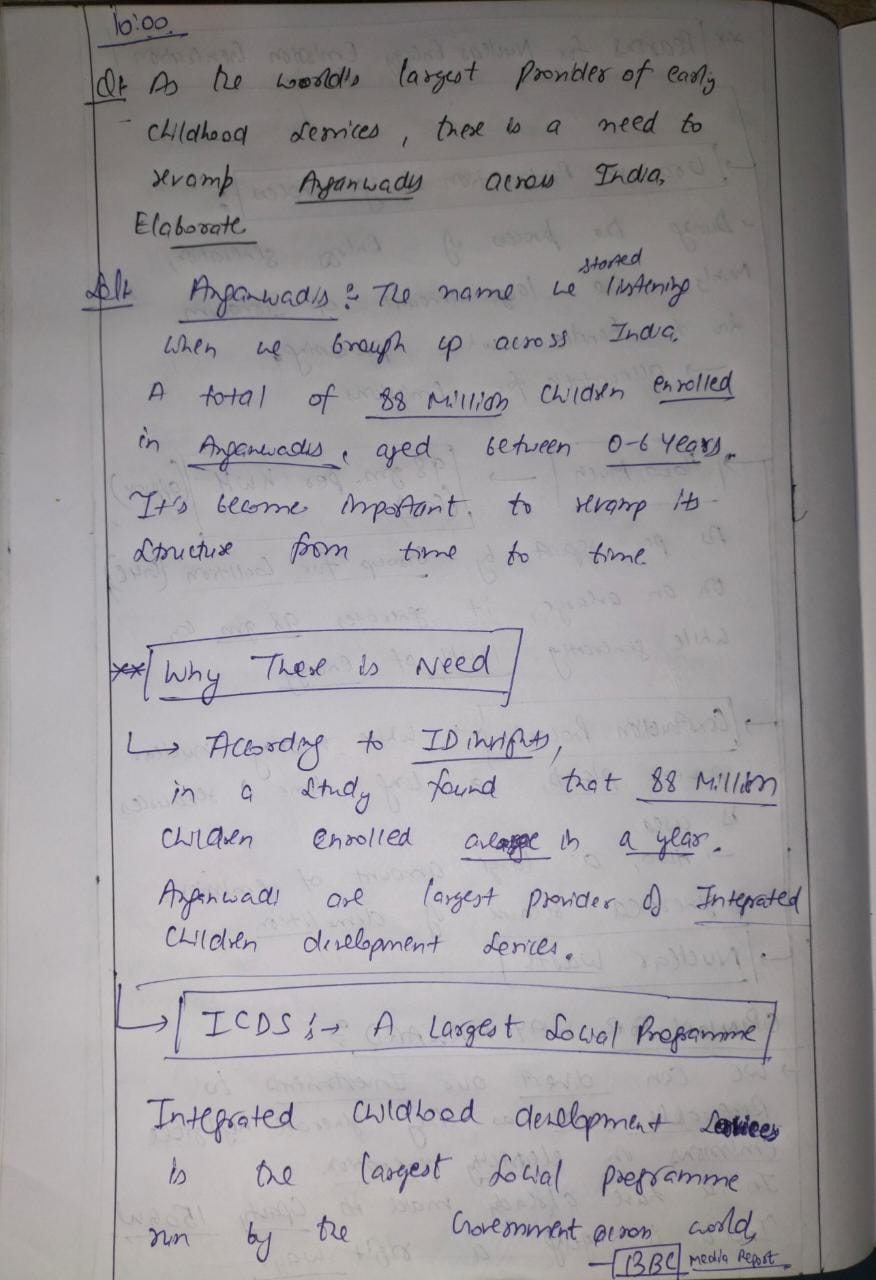 10:00
Q1 As the world's largest provider of early
childhood services, there is a need to
revamp Anganwadis across India,
Elaborate
Sol: Anganwadis: The name we started listening
when we brough up across India.
A total of 88 Million children enrolled
in Anganwadis, aged between 0-6 Years.
It's become important to revamp its
structure from time to time.
** Why There is Need
↳ According to IDinsights,
in a study found that 88 Million
children enrolled in a year.
Anganwadi are largest provider of Integrated
Children development services.
↳ ICDS :→ A Largest Social Programme
Integrated childhood development Services
is the largest social programme
run by the Government across world,
- BBC Media Report.